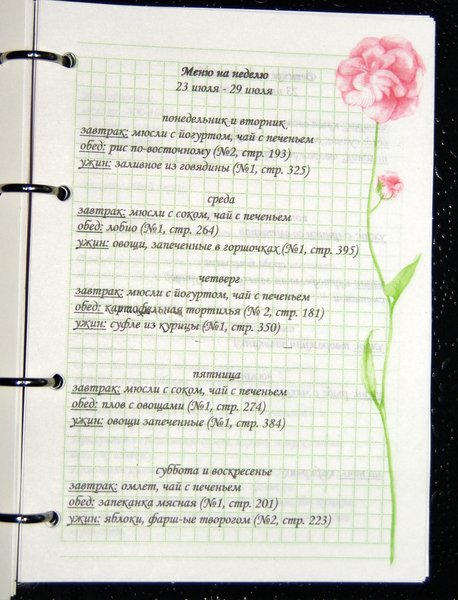 Меню на неделю
23 июля - 29 июля
понедельник и вторник
завтрак: мюсли с йогуртом, чай с печеньем
обед: рис по-восточному (№2, стр. 193)
ужин: заливное из говядины (№1, стр. 325)
среда
завтрак: мюсли с соком, чай с печеньем
обед: лобио (№1, стр. 264)
ужин: овощи, запеченные в горшочках (№1, стр. 395)
четверг
завтрак: мюсли с йогуртом, чай с печеньем
обед: картофельная тортилья (№ 2, стр. 181)
ужин: суфле из курицы (№1, стр. 350)
пятница
завтрак: мюсли с соком, чай с печеньем
обед: плов с овощами (№1, стр. 274)
ужин: овощи запеченные (№1, стр. 384)
суббота и воскресенье
завтрак: омлет, чай с печеньем
обед: запеканка мясная (№1, стр. 201)
ужин: яблоки, фарш-ые творогом (№2, стр. 223)